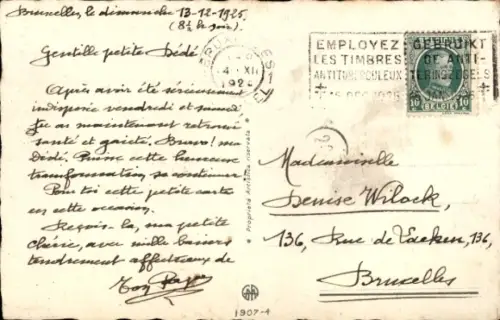 Bruxelles, le dimanche 13-12-1925
(8½ le soir)
Gentille petite Dédé
Après avoir été sérieusement
indisposée vendredi et samedi
tu as maintenant retrouvé
santé et gaieté. Bravo! ma
Dédé. Puisse cette heureuse
transformation se continuer.
Pour toi cette petite carte
en cette occasion.
Reçois-la, ma petite
chérie, avec mille baisers
tendrement affectueux de
Ton Papa
Propriété Artistique réservée
1907-4
EMPLOYEZ
LES TIMBRES
ANTITUBERCULEUX
GEBRUIKT
DE ANTI-
TERINGZEGELS
10 BELGIË 10
Mademoiselle
Denise Wilock,
136, Rue de Laeken, 136,
Bruxelles